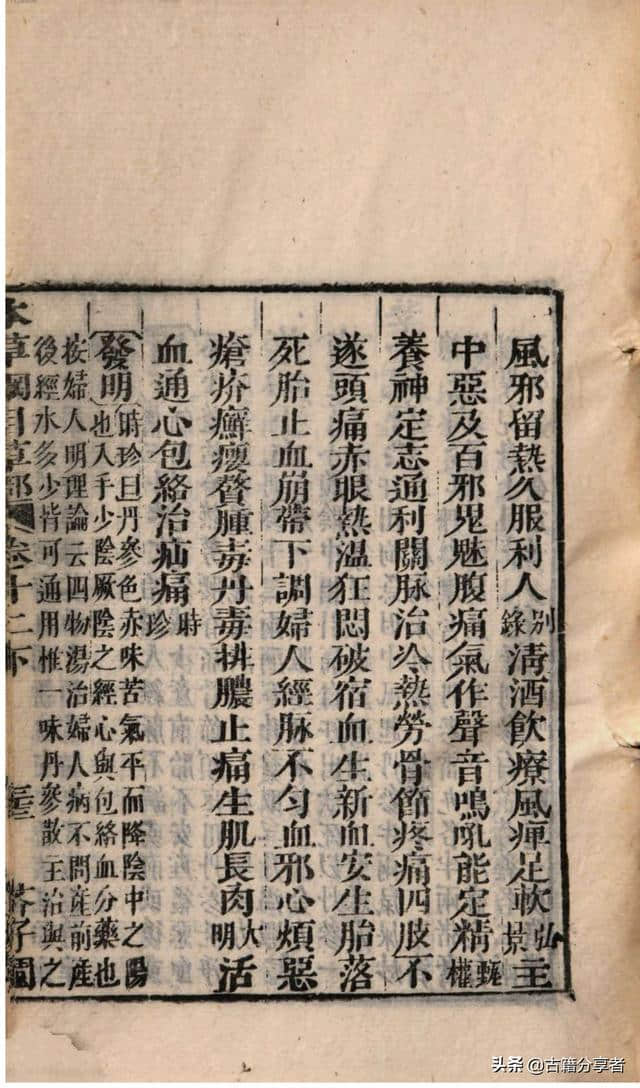 風邪留熱久服利人別錄淸酒飮療風痺足軟弘景主
中惡及百邪鬼魅腹痛氣作聲音鳴吼能定精甄權
養神定志通利關脉治冷熱勞骨節疼痛四肢不
遂頭痛赤眼熱溫狂悶破宿血生新血安生胎落
死胎止血崩帶下調婦人經脉不匀血邪心煩惡
瘡疥癬癭贅腫毒丹毒排膿止痛生肌長肉大明活
血通心包絡治疝痛時珍
發明時珍曰丹參色赤味苦氣平而降陰中之陽
也入手少陰厥陰之經心與包絡血分藥也
按婦人明理論云四物湯治婦人病不問産前産
後經水多少皆可通用惟一味丹參散主治與之
本草綱目草部卷十二下 芥子園
头条 @古籍分享者